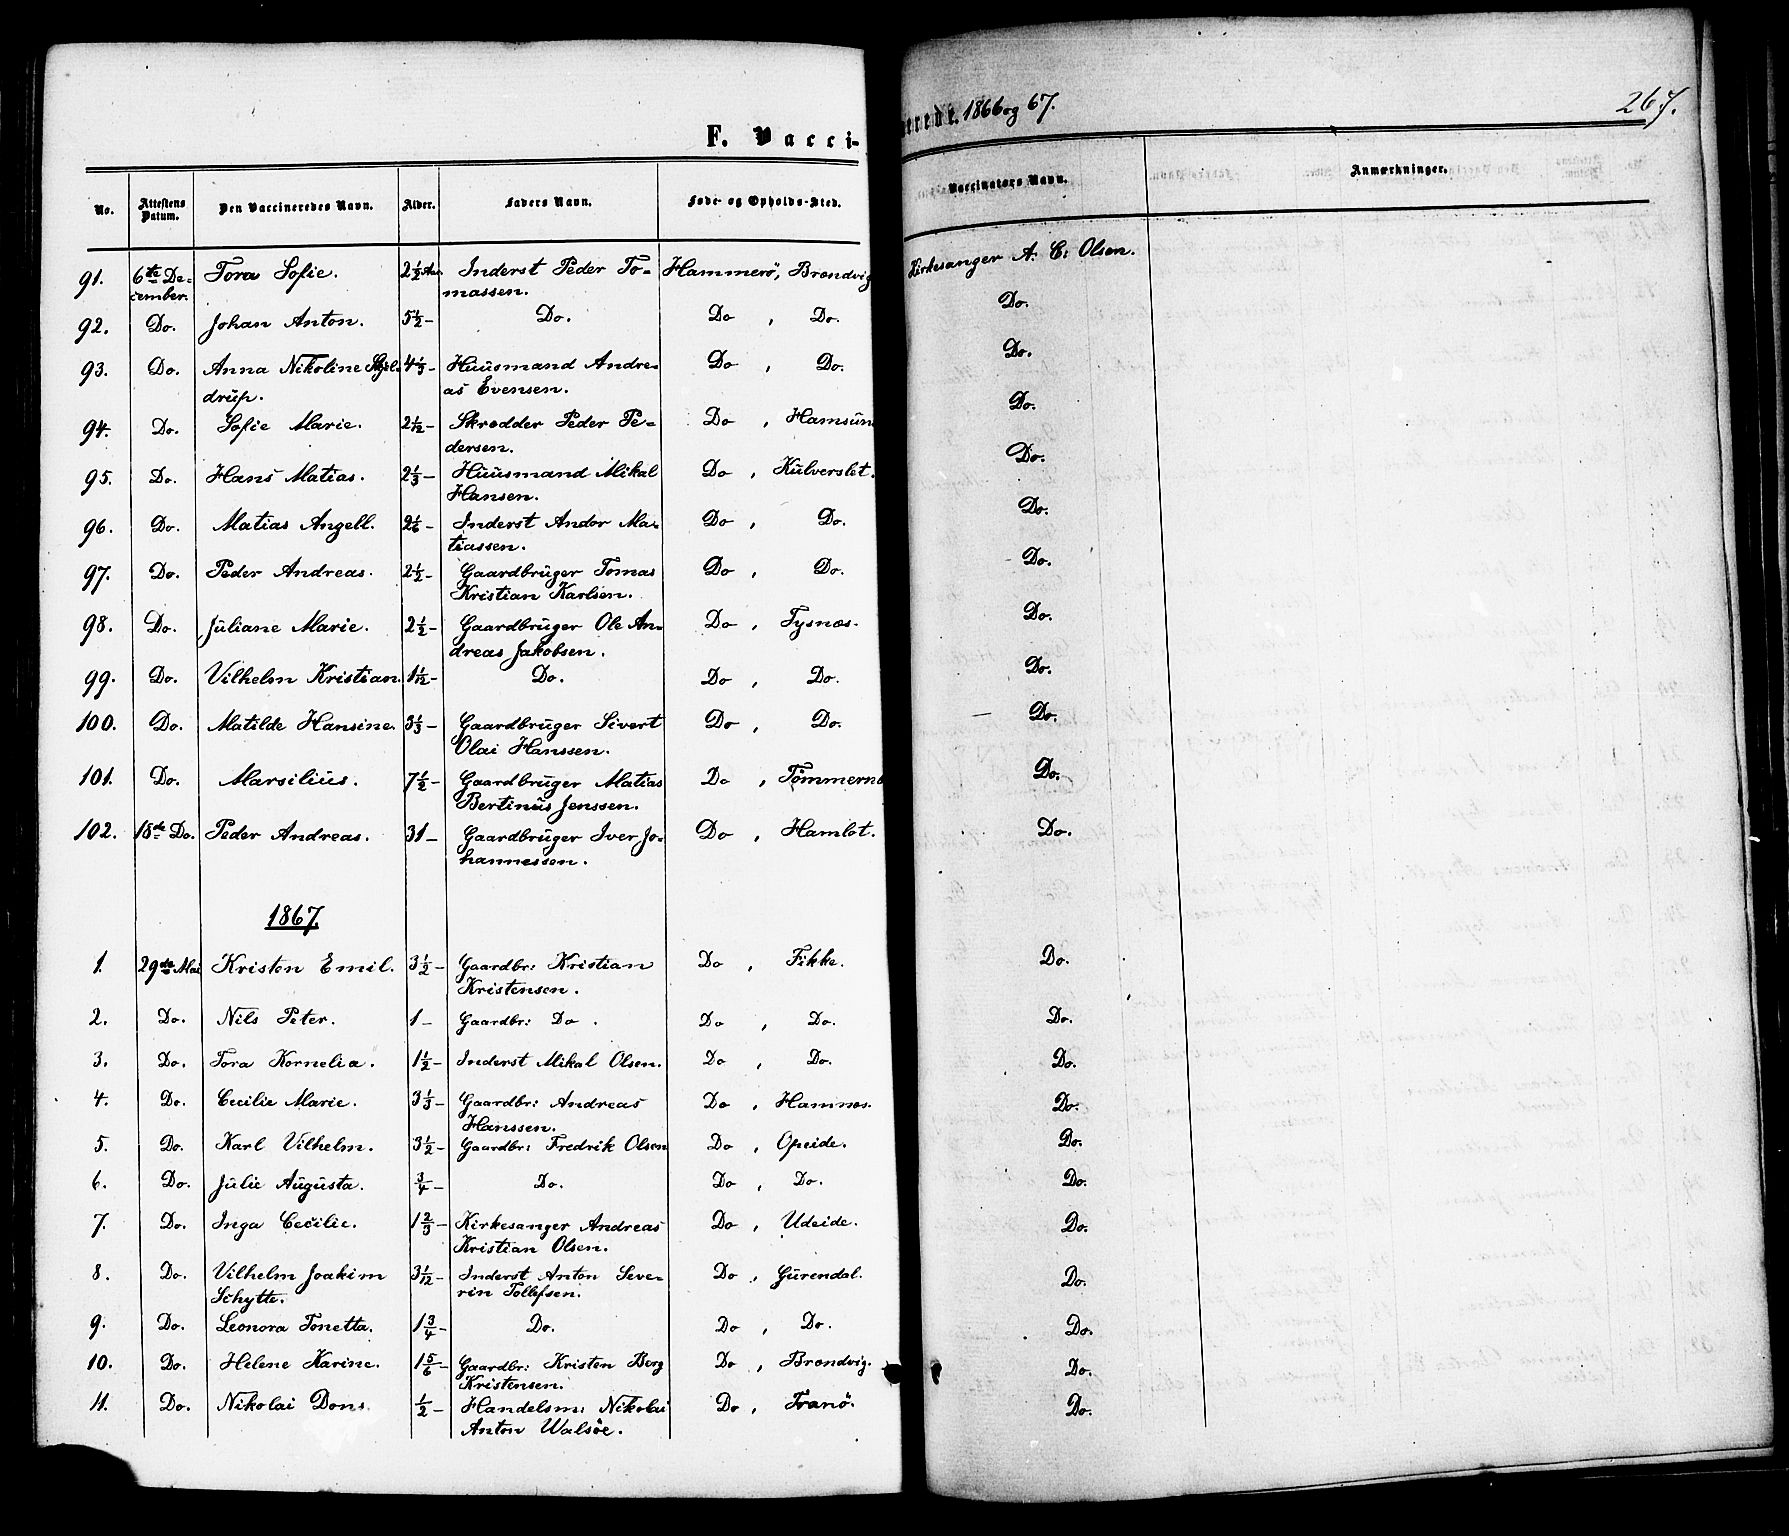 F. Vacci-
nerede. 1866 og 67.
267.
No. Attestens Datum. Den Vaccineredes Navn. Alder. Faders Navn. Føde- og Opholds-Sted. Vaccinators Navn. Anmærkninger.
91. 6te De- Tora Sofie. 2 1/3 Aar Inderst Peder To- Hammerö, Brændvig Kirkesanger A. C: Olsen.
cember. massen.
92. Do. Johan Anton. 5 1/2 – Do. Do , Do. Do.
93. Do. Anna Nikoline Skjel- 4 1/3 – Huusmand Andre- Do , Do. Do.
drup. as Evensen.
94. Do. Sofie Marie. 2 1/12 – Skrædder Peder Pe- Do , Hamsun Do.
dersen.
95. Do. Hans Matias. 2 1/3 – Huusmand Mikal Do , Kulverslet. Do.
Hansen.
96. Do. Matias Angell. 2 1/6 – Inderst Andor Ma- Do , Do. Do.
tiassen.
97. Do. Peder Andreas. 2 1/2 – Gaardbruger Tomas Do , Do. Do.
Kristian Karlsen.
98. Do. Juliane Marie. 2 1/2 – Gaardbruger Ole An- Do , Tysnæs. Do.
dreas Jakobsen.
99. Do. Vilhelm Kristian. 1 1/12 – Do. Do , Do. Do.
100. Do. Matilde Hansine. 3 1/3 – Gaardbruger Sivert Do , Do. Do.
Olai Hanssen.
101. Do. Marsilius. 7 1/2 – Gaardbruger Matias Do , Tömmernæ Do.
Bertinus Jenssen.
102. 18de Do. Peder Andreas. 31 – Gaardbruger Iver Jo- Do , Hamlot. Do.
hannessen.
1867.
1. 29de Mai Kristen Emil. 3 1/2 – Gaardbr: Kristian Do , Fikke. Do.
Kristensen.
2. Do. Nils Peter. 1 – Gaardbr: Do . Do , Do. Do.
3. Do. Tora Kornelia. 1 1/2 – Inderst Mikal Olsen. Do , Do. Do.
4. Do. Cecilie Marie. 3 1/3 – Gaardbr: Andreas Do , Hamnæs. Do.
Hanssen.
5. Do. Karl Vilhelm. 3 1/2 – Gaardbr: Fredrik Olsen Do , Opeide. Do.
6. Do. Julie Augusta. 3/4 – Do. Do , Do. Do.
7. Do. Inga Cecilie. 1 2/3 – Kirkesanger Andreas Do , Udeide. Do.
Kristian Olsen.
8. Do. Vilhelm Joakim 3 1/12 – Inderst Anton Seve- Do , Gurendal. Do.
Schytte. rin Tollefsen.
9. Do. Leonora Tonetta. 1 3/4 – Do. Do , Do. Do.
10. Do. Helene Karine. 1 5/6 – Gaardbr: Kristen Berg Do , Brændvig. Do.
Kristensen.
11. Do. Nikolai Dons. 1/2 – Handelsm: Nikolai Do , Tranö. Do.
Anton Walsöe.